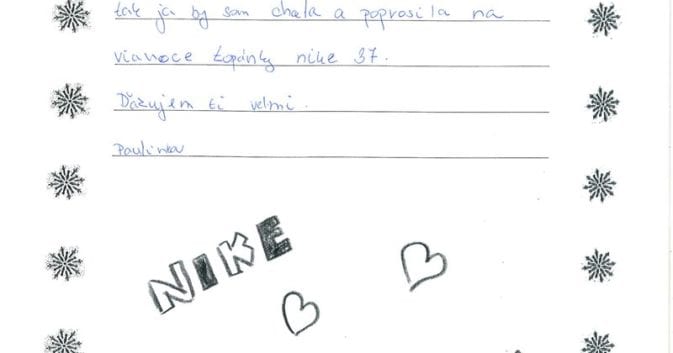 tak ja by som chcela a poprosila na
vianoce topánky nike 37.
Ďakujem ti velmi.
Paulinka
NIKE